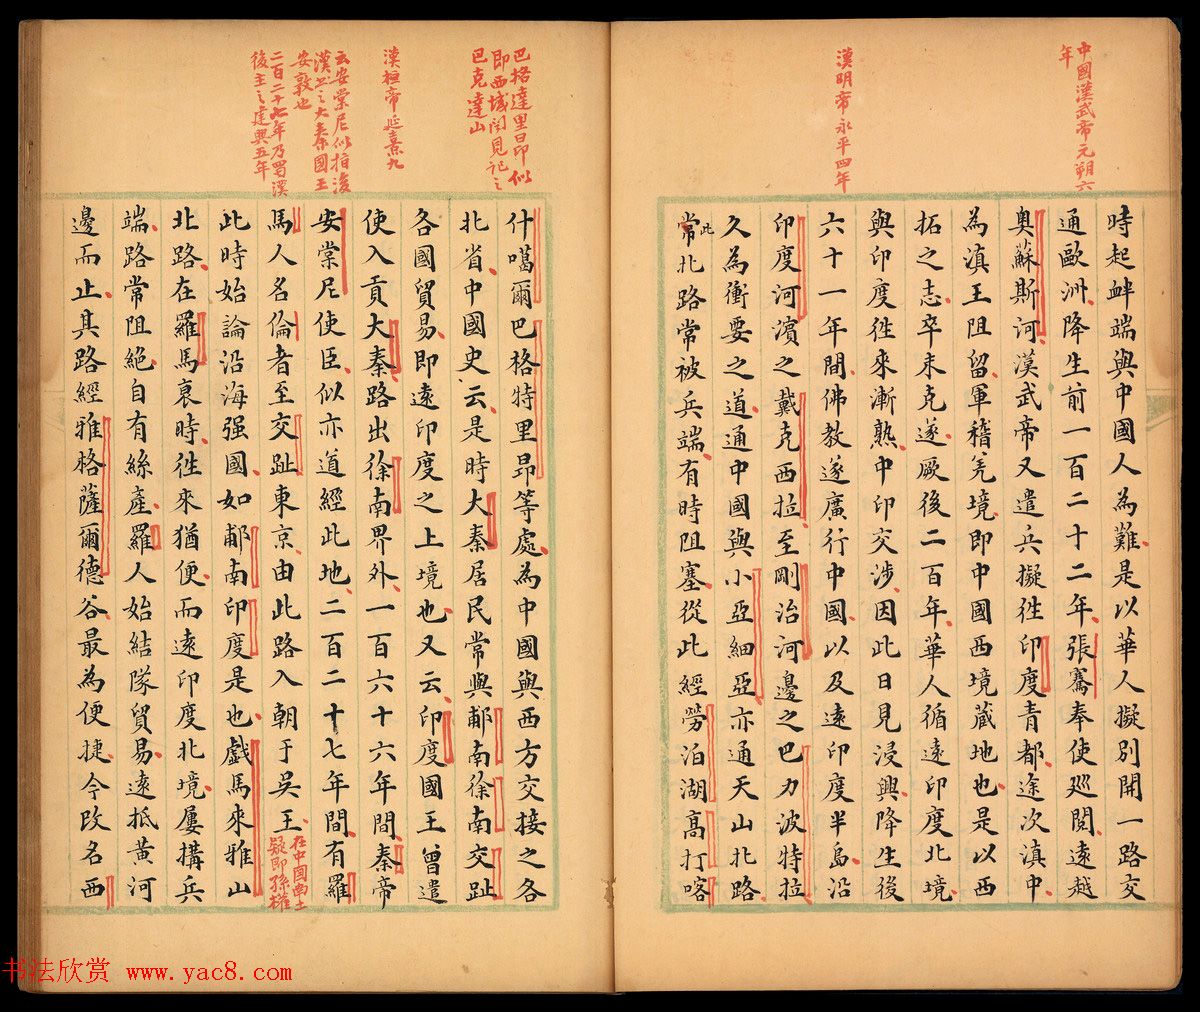 中國漢武帝元朔六
年
漢明帝永平四年
時起衅端與中國人為難是以華人擬别開一路交
通歐洲降生前一百二十二年張騫奉使巡閱遠越
奥蘇斯河漢武帝又遣兵擬徃印度青都途次滇中
為滇王阻留軍稽羌境即中國西境蔵地也是以西
拓之志卒未克遂厥後二百年華人循遠印度北境
與印度徃來漸熟中印交涉因此日見浸興降生後
六十一年間佛教遂廣行中國以及遠印度半島沿
印度河濱之戴克西拉至剛治河邊之巴力波特拉
久為衝要之道通中國與小亞細亞亦通天山北路
此
常北路常被兵端有時阻塞從此經勞泊湖高打喀
巴格達里昂似
即西域聞見記之
巴克達山
漢桓帝延熹九
云安棠尼似指後
漢書之大秦國王
安敦也
二百二十七年乃蜀漢
後主之建興五年
什噶爾巴格特里昂等處為中國與西方交接之各
北省中國史云是時大秦居民常與鄅南徐南交趾
各國貿易即遠印度之上境也又云印度國王曾遣
使入貢大秦路出徐南界外一百六十六年間秦帝
安棠尼使臣似亦道經此地二百二十七年間有羅
馬人名倫者至交趾東京由此路入朝于吴王
在中國南土
疑即孫權
此時始論沿海强國如鄅南印度是也戲馬來雅山
北路在羅馬衰時徃來猶便而遠印度北境屢搆兵
端路常阻絶自有絲產羅人始結隊貿易遠抵黄河
邊而止其路經雅格薩爾德谷最為便捷今改名西
书法欣赏 www.yac8.com